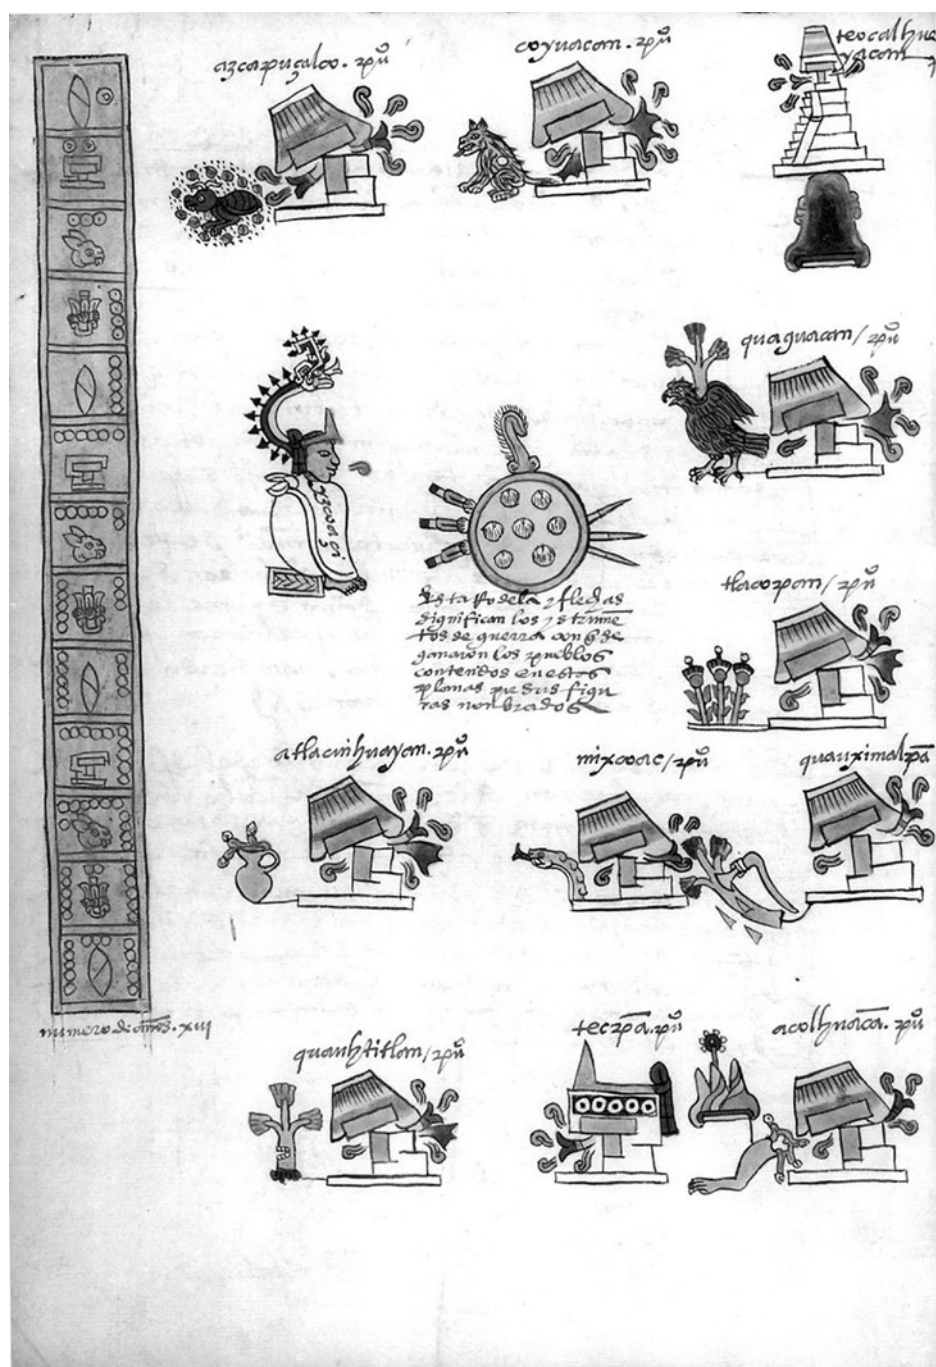 azcapuçalco. pu°
coyuacan. pu°
teocalhue
yacan
quaguacan / pu°
yzcoaçi
tlacopan / pu°
Esta Rodela y flechas
significan los ystrume
tos de guerra con q̄ se
ganaron los pueblos
contenidos en estas
planas por sus figu
ras nonbrados
atlacuihuayan. pu°
mixcoac / pu°
quauximalpā
numero de años. xiii
quauhtitlan / pu°
tecpā. pu°
acolhuacā. pu°